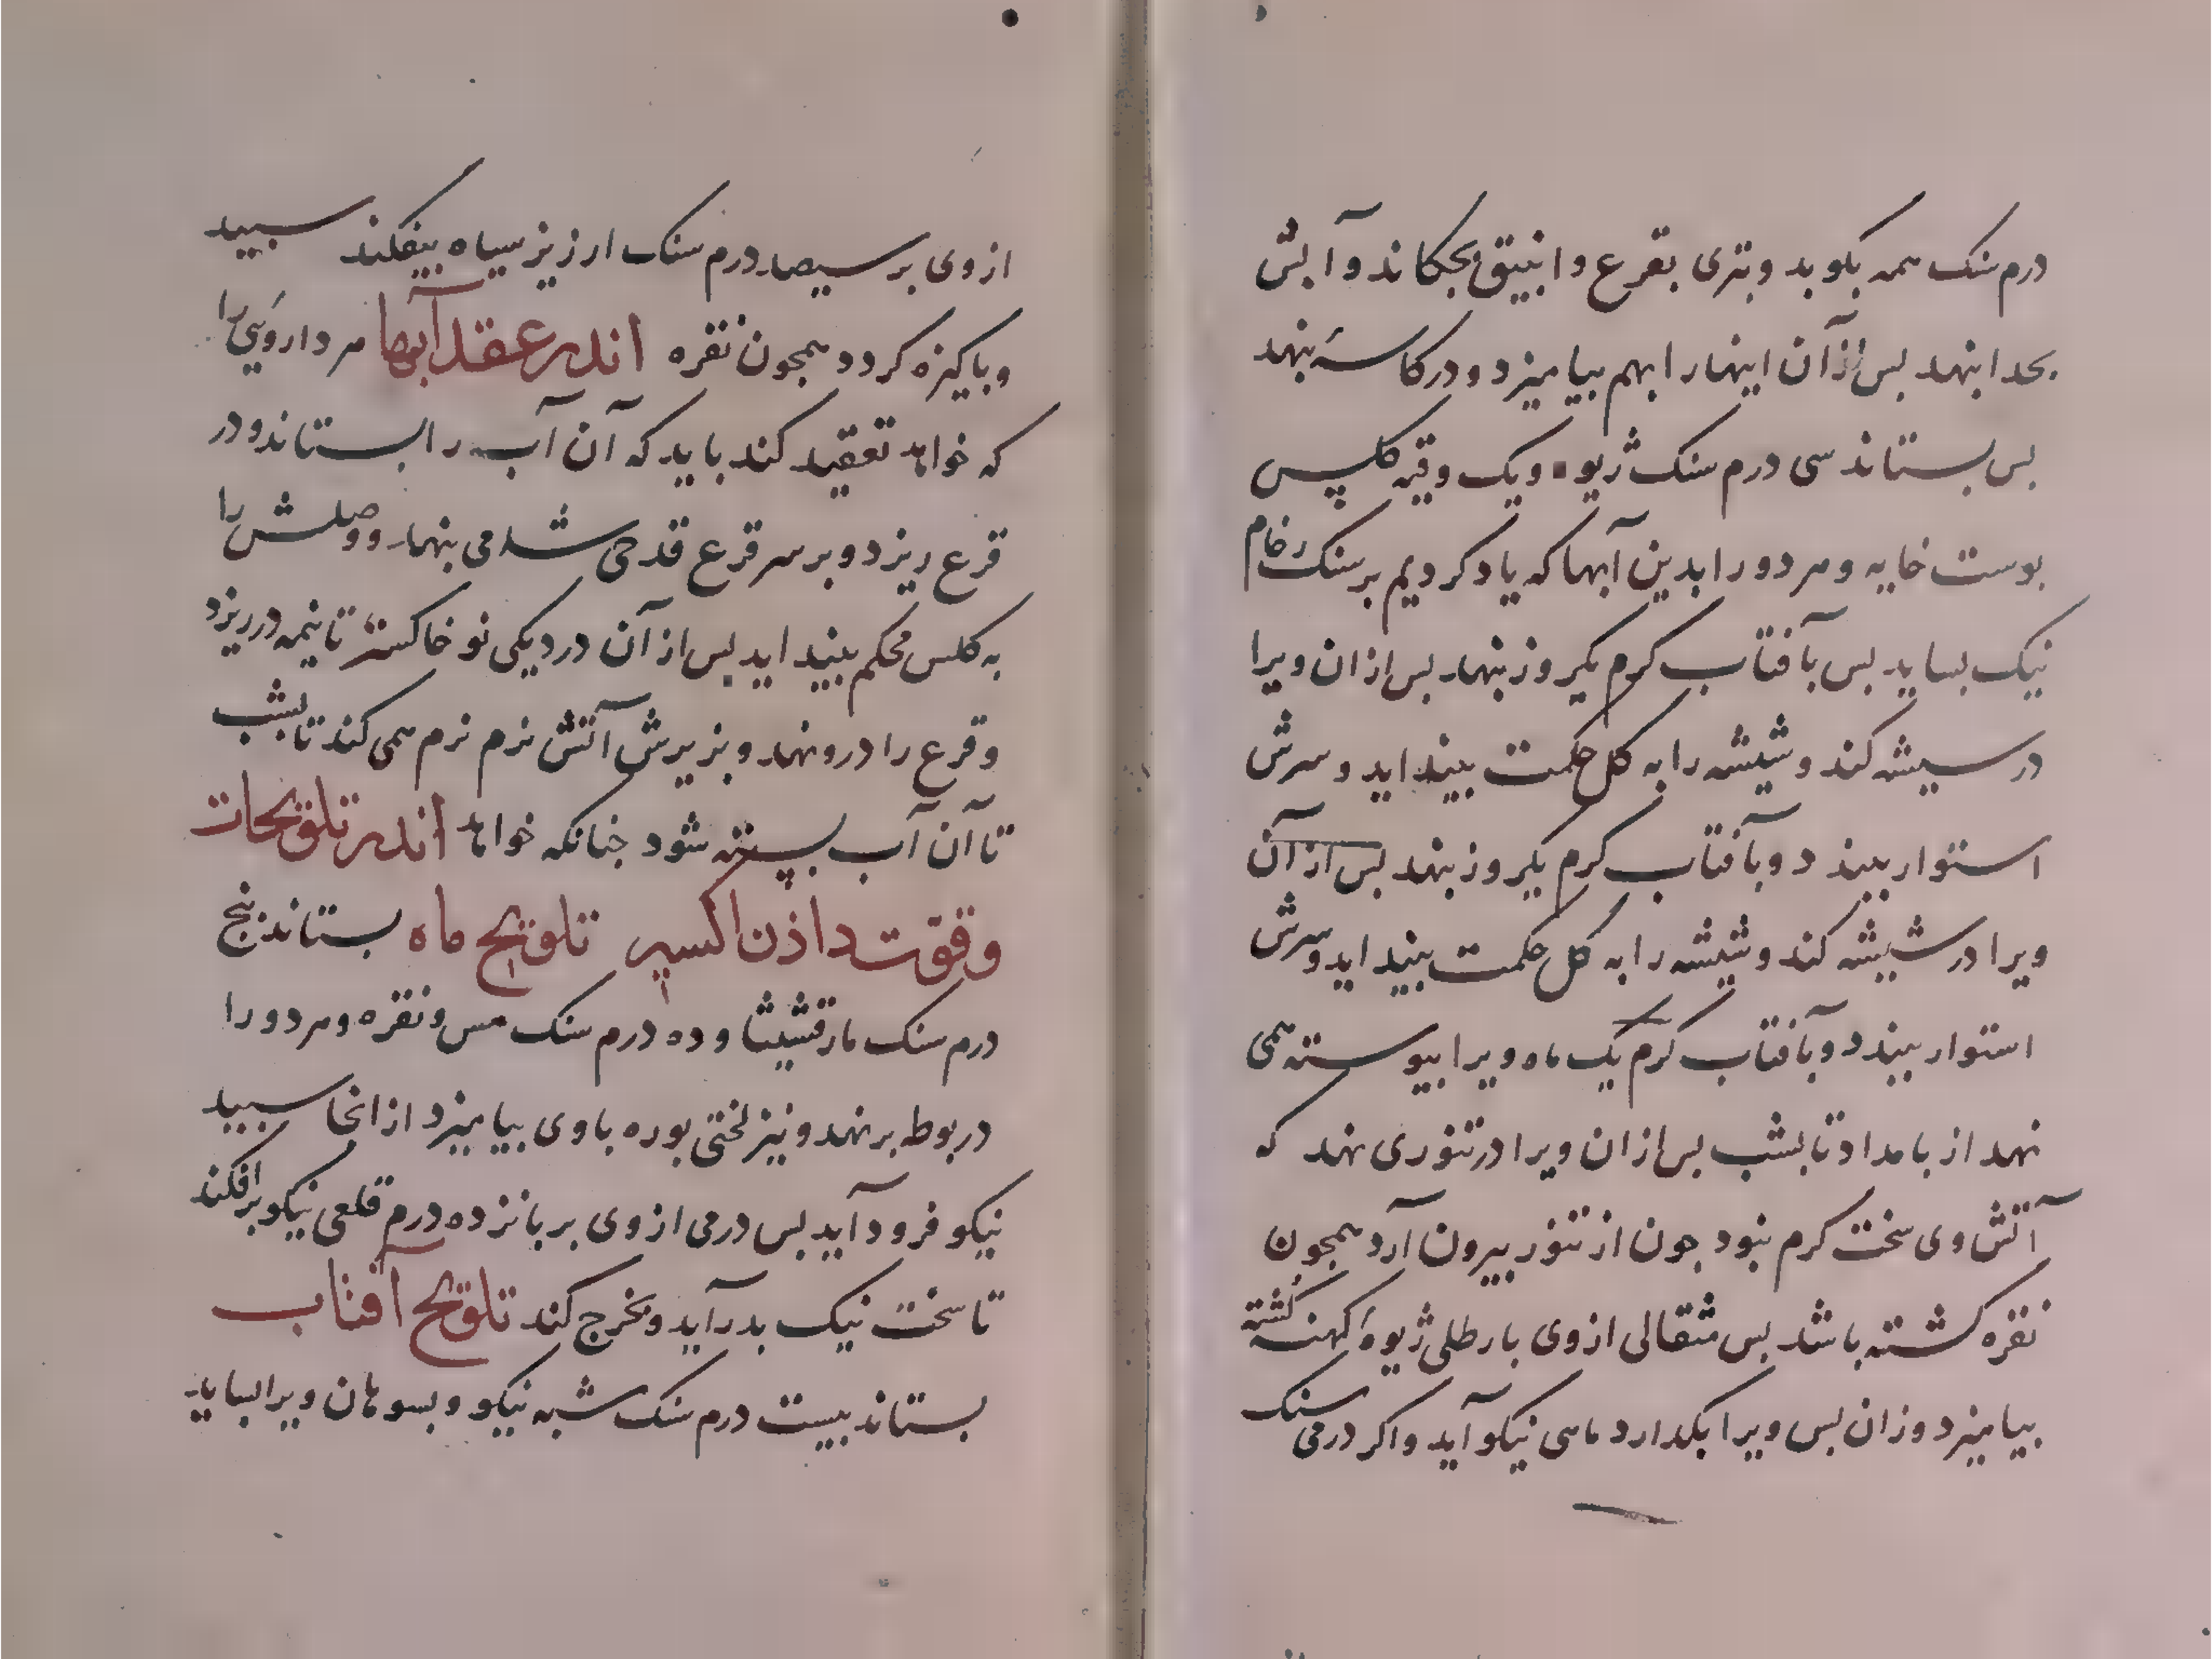 درم سنک همه بکوبد وبتری بقرع وانبیق بجکاند وآبش
بحدا بنهد بس ازآن اینهارا بهم بیامیزد ودرکاسهٔ بنهد
بس بستاند سی درم سنک ژیوه ویک وقیه کلس
بوست خایه وهردورا بدین آبها که یادکردیم برسنک رخام
نیک بساید بس بآفتاب کرم یکروز بنهد بس ازان ویرا
درسیشه کند وشیشه را به کل حکمت بینداید وسرش
استوار ببندد وبآفتاب کرم یکروز بنهد بس ازآن
ویرا درشیشه کند وشیشه را به کل حکمت بینداید وسرش
استوار ببندد وبآفتاب کرم یک ماه ویرا بیوسته همی
نهد از بامداد تا بشب بس ازان ویرا درتنوری نهد که
آتش وی سخت کرم بنود جون از تنور بیرون آرد همجون
نقره کشته باشد بس مثقالی ازوی بارطلی ژیوهٔ کهنه کشته
بیامیزد وزان بس ویرا بکدارد ماسی نیکو آید واکر درمی سنک
ازوی برسیصد درم سنک ارزیز سیاه بیفکند سبید
وباکیزه کردد همجون نقره اندر عقد آبها هر داروئی را
که خواهد تعقید کند باید که آن آب را بستاند ودر
قرع ریزد وبر سر قرع قدحی شامی بنهد ووصلش را
به کلس محکم بینداید بس ازآن دردیکی نو خاکستر تا نیمه درریزد
وقرع را درونهد وبزیرش آتش نرم نرم همی کند تا بشب
تا آن آب بسته شود جنانکه خواهد اندر تلویحات
وقوت داذن اکسیر تلویح ماه بستاند بنج
درم سنک مارقشیشا وده درم سنک مس ونقره وهردورا
دربوطه برنهد ونیز لختی بوره باوی بیامیزد ازانجا سبید
نیکو فرود آید بس درمی ازوی بر بانزده درم قلعی نیکو برافکند
تا سخت نیک بدرآید وبخرج کند تلویح آفتاب
بستاند بیست درم سنک شبه نیکو وبسوهان ویرا بساید